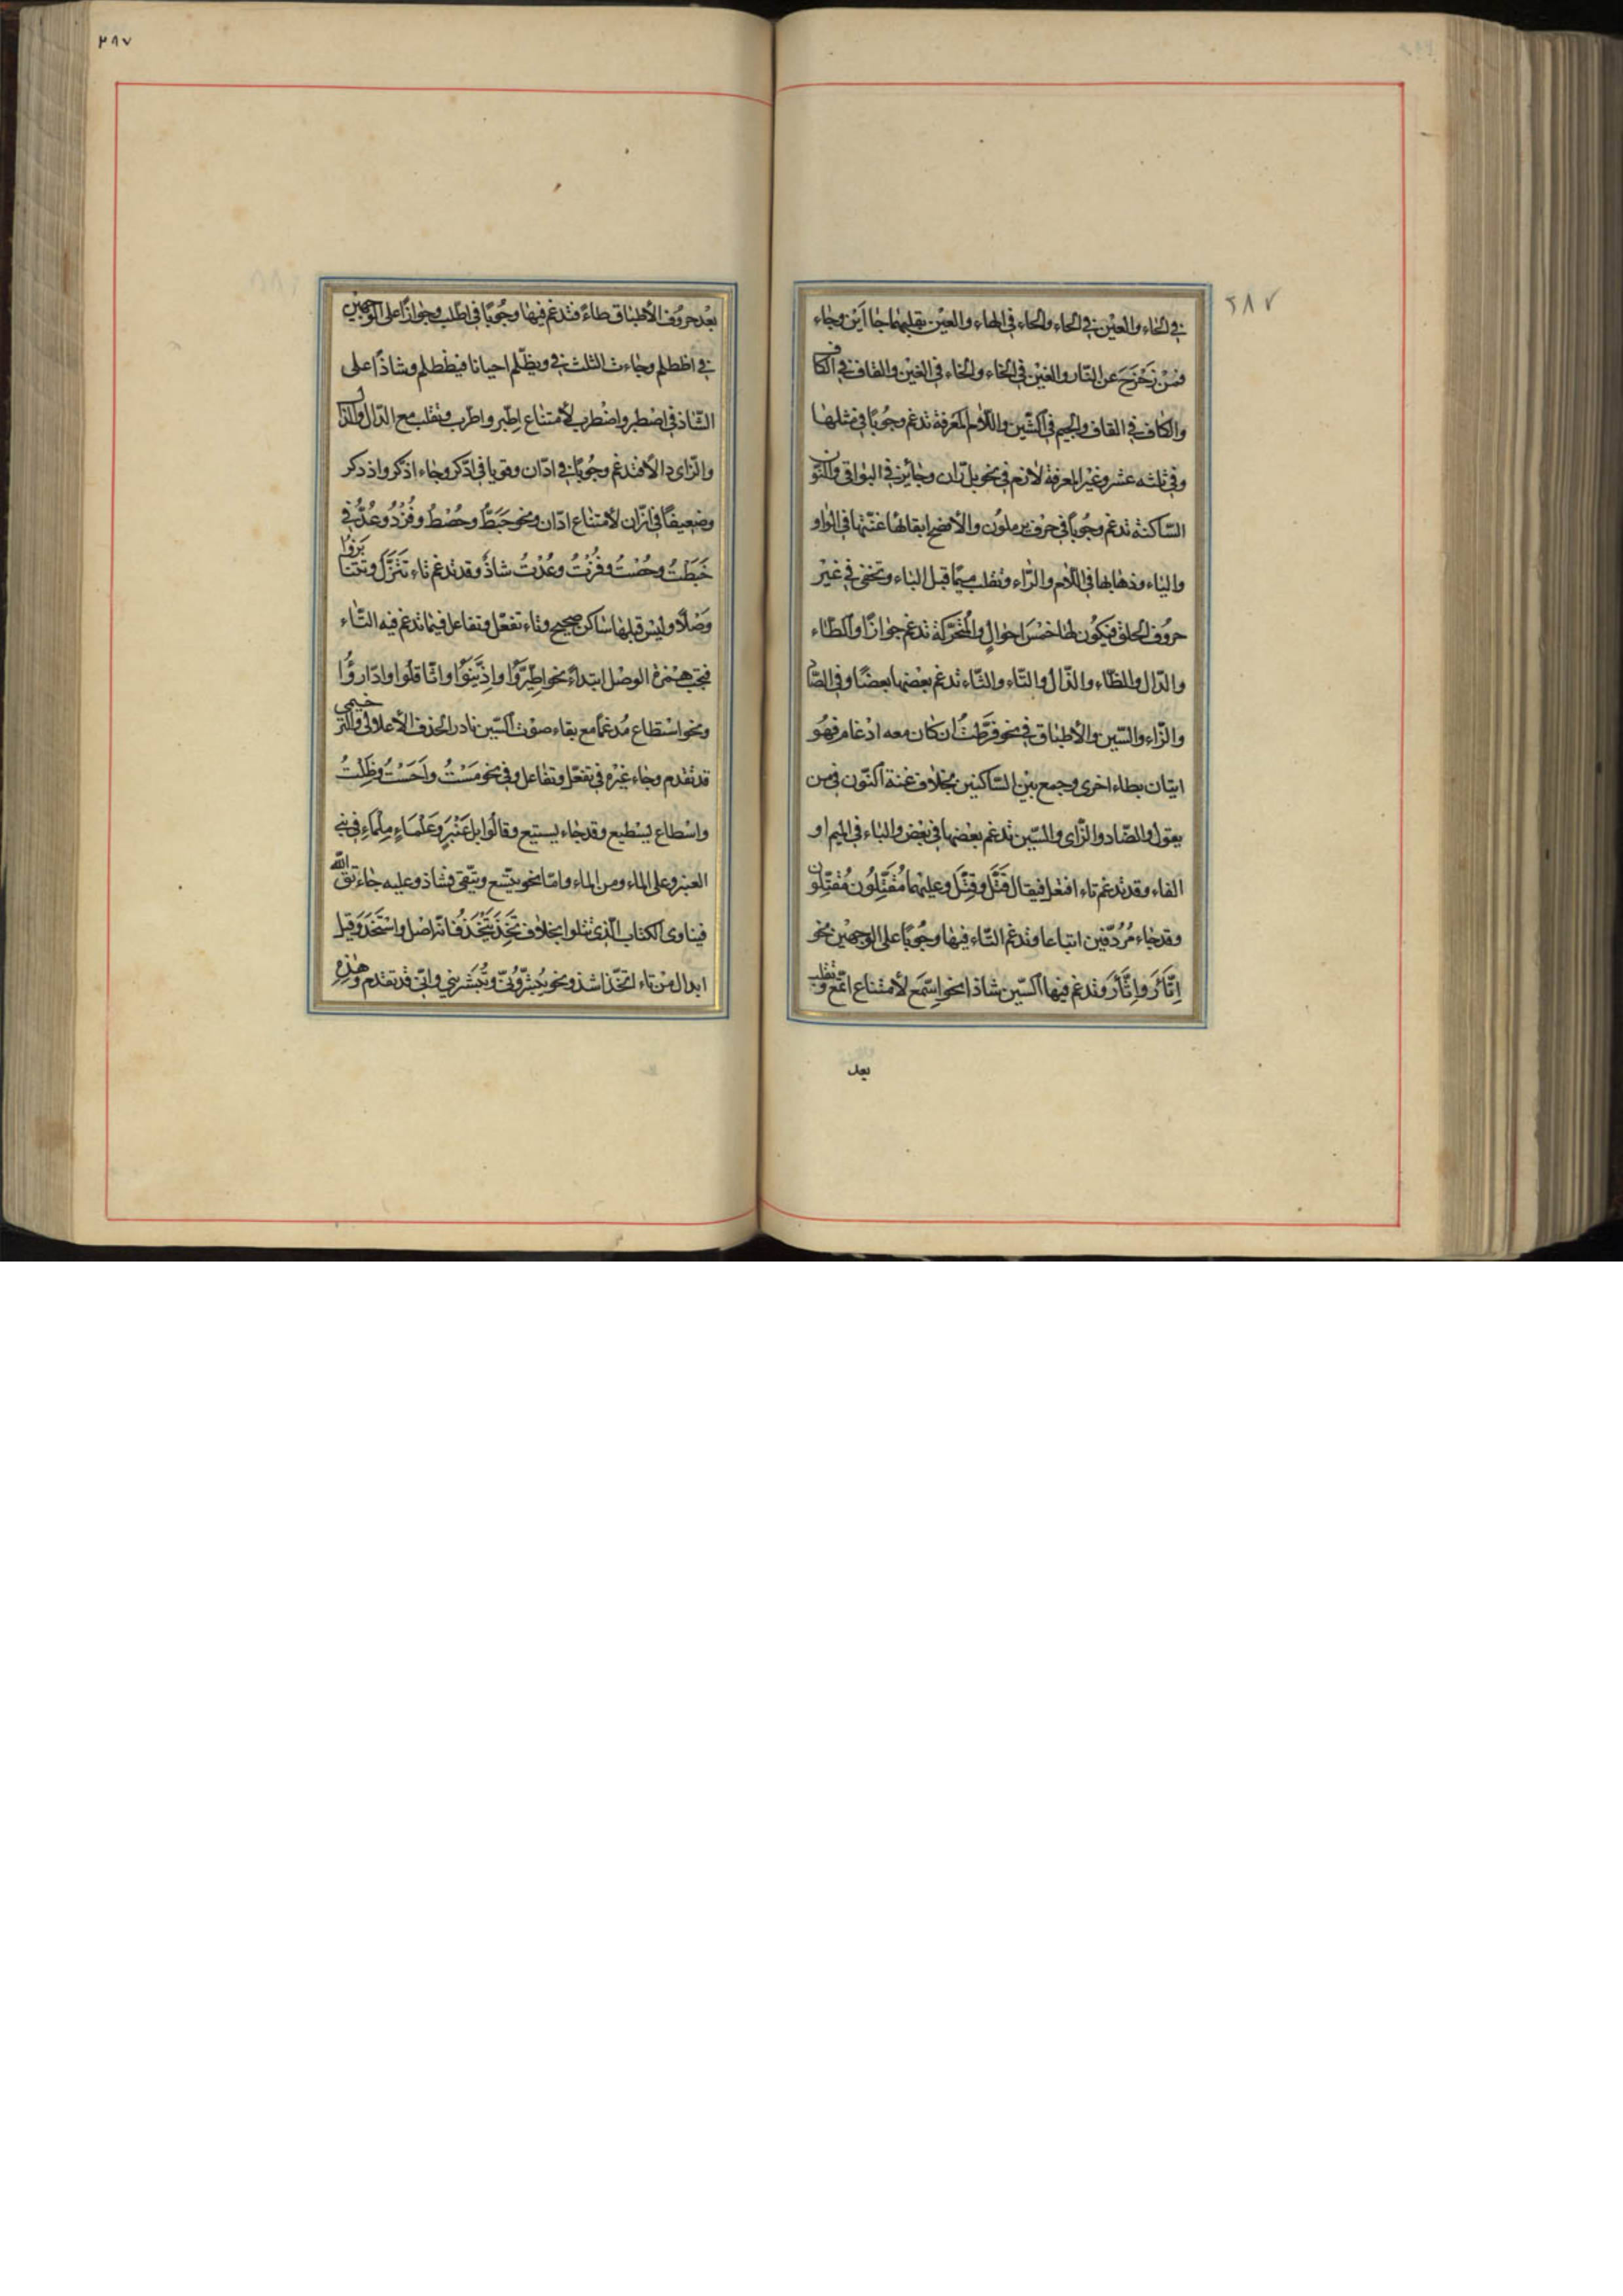 ٢٨٧
في الحاء والعين في الحاء والحاء في الهاء والعين بقلبهما حاا اين وجاء
فمن زحزح عن النار والغين في الخاء والخاء في الغين والقاف في الكاف
والكاف في القاف والجيم في الشين واللام المعرفة تدغم وجوبا في مثلها
وفي ثلثه عشر وغير المعرفة لازم في نحو بل ران وجائز في البواقي والنون
الساكنة تدغم وجوبا في حرف يرملون والأفصح ابقاؤها غنتها في الواو
والياء وذهابها في اللام والراء وتقلب ميما قبل الباء وتخفى في غير
حروف الحلق فيكون لها خمس احوال والمتحركة تدغم جوازا والطاء
والدال والظاء والذال والتاء والثاء تدغم بعضها بعضا وفي الصا
والزاء والسين والأطباق في نحو فرطت ان كان معه ادغام فهو
اتيان بطاء اخرى وجمع بين الساكنين بخلاف غنة النون في من
يقول والصاد والزاى والسين تدغم بعضها في بعض والباء في الميم او
الفاء وقد تدغم تاء افتعل فيقال قَتَّل وقِتَّل وعليهما مُقَتِّلون مُقِتِّلون
وقد جاء مُرُدّفين اتباعا وتدغم الثاء فيها وجوبا على الوجهين نحو
اِتَّأَرَ واِثَّأَرَ وتدغم فيها السين شاذا نحو اسّمع لأمتناع اتّمع وتقلب
بعد
٣٨٧
بعد حروف الأطباق طاءً فتدغم فيها وجوبا في اطّلب وجوازا على الوجهين
في اظطلم وجاءت الثلث في ويظّلم احيانا فيظطلم وشاذا على
الشاذ في اصطبر واضطرب لأمتناع اطّبر واطّرب وتقلب مع الدال والذال
والزاى دالا فتدغم وجوبا في ادّان وقويا في ادّكر وجاء اذّكر واذدكر
وضعيفا في ازّان لأمتناع ادّان ونحو خبطّ وحُصْطُ وفُزْدُ وعُدُّ في
خَبَطْتُ وحُصْتُ وفُزْتُ وعُدْتُ شاذّ وقد تدغم تاء تتنزّل وتتنابزوا
وَصْلًا وليس قبلها ساكن صحيح وتاء تفعّل وتفاعل فيما تدغم فيه التاء
فتجب همزة الوصل ابتداءً نحو اطّيّروا وازّيّنوا واثّاقلوا وادّارؤا
ونحو اسْطاع مُدغما مع بقاء صوت السين نادر الحذف الأعلالي والترخيمى
قد تقدم وجاء غيره في تفعّل وتفاعل وفي نحو مَسْتُ وأَحَسْتُ وظَلْتُ
واسْطاع يسْطيع وقد جاء يستيع وقالوا بلعنبر وعَلْماءِ مِلْماءِ في بني
العنبر وعلى الماء ومن الماء وامّا نحو يتّسع ويتّقي فشاذ وعليه جاء تق الله
فينا وى الكتاب الّذي تتلوا بخلاف تَخِذَ يَتْخَذُ فانّه اصل واستخذ وقيل
ابدال من تاء اتّخذ اشذ ونحو يُبشّرونّ وتُبشّريني وانّي قد تقدم وهذه